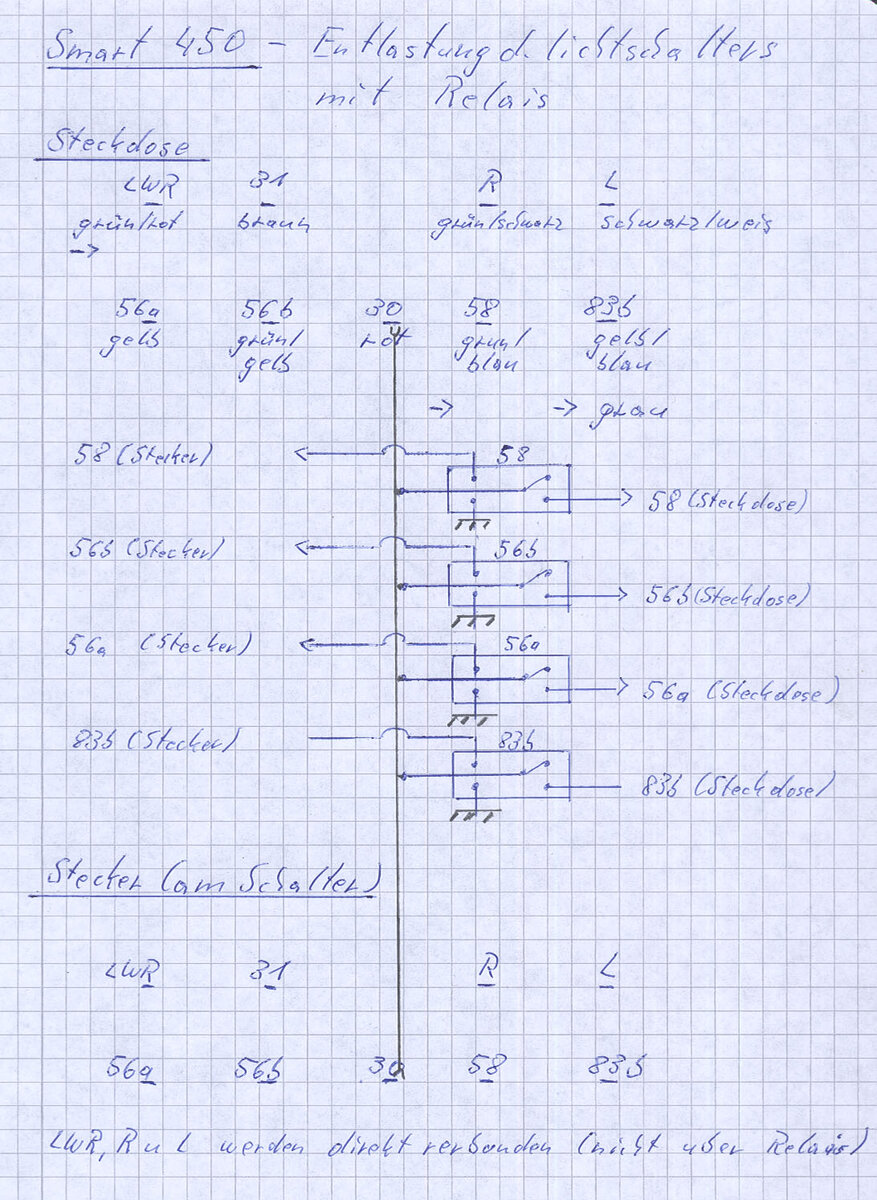 Smart 450 - Entlastung d. Lichtschalters
mit Relais
Steckdose
LWR 31 R L
grün/rot braun grün/schwarz schwarz/weis
->
56a 56b 30 58 83b
gelb grün/ rot grün/ gelb/
gelb blau blau
-> -> grau
58 (Stecker) 58
58 (Steckdose)
56b (Stecker) 56b
56b (Steckdose)
56a (Stecker) 56a
56a (Steckdose)
83b (Stecker) 83b
83b (Steckdose)
Stecker (am Schalter)
LWR 31 R L
56a 56b 30 58 83b
LWR, R u L werden direkt verbunden (nicht über Relais)